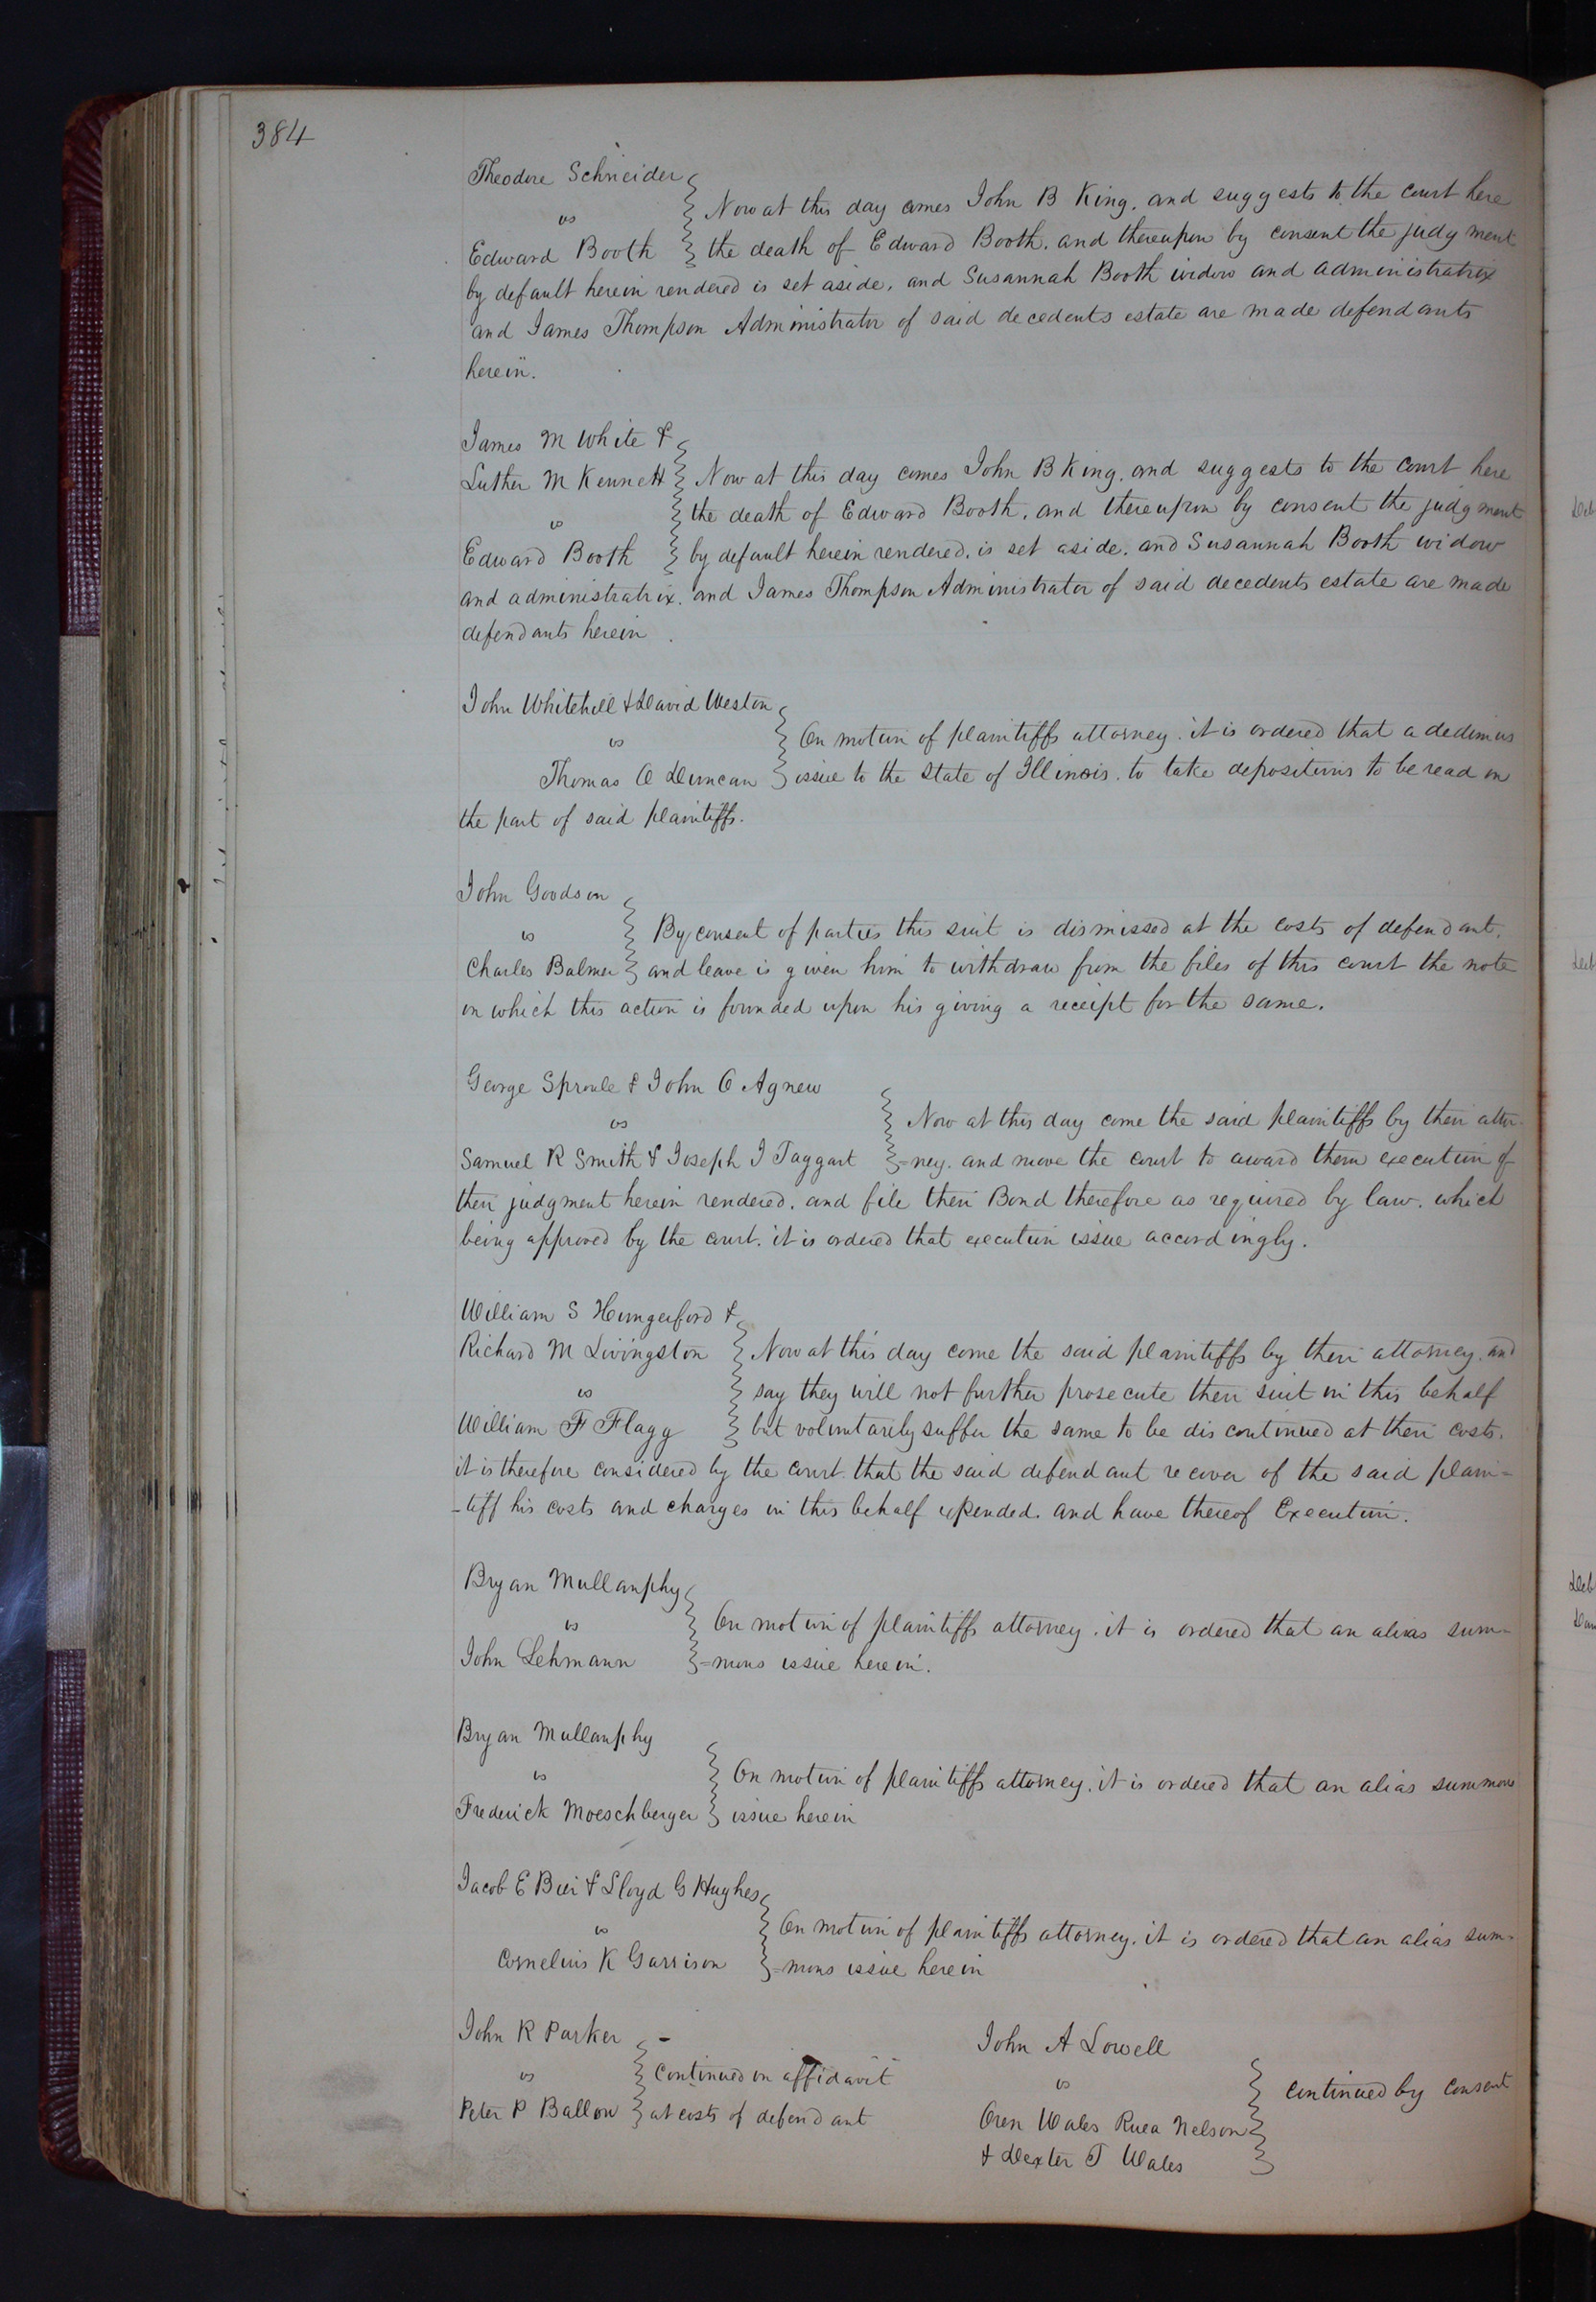 384
Theodore Schneider
vs
Edward Booth
Now at this day comes John B King. and suggests to the court here
the death of Edward Booth. and thereupon by consent the judgment
by default herein rendered is set aside. and Susannah Booth widow and administratrix
and James Thompson Administrator of said decedents estate are made defendants
herein.
James M White &
Luther M Kennett
vs
Edward Booth
Now at this day comes John B King. and suggests to the court here
the death of Edward Booth. and thereupon by consent the judgment
by default herein rendered. is set aside. and Susannah Booth widow
and administratrix. and James Thompson Administrator of said decedents estate are made
defendants herein.
John Whitehill & David Weston
vs
Thomas O Duncan
On motion of plaintiffs attorney. it is ordered that a dedimus
issue to the State of Illinois. to take depositions to be read on
the part of said plaintiffs.
John Goodson
vs
Charles Balmer
By consent of parties this suit is dismissed at the costs of defendant.
and leave is given him to withdraw from the files of this court the note
on which this action is founded upon his giving a receipt for the same.
George Sproule & John O Agnew
vs
Samuel R Smith & Joseph J Taggart
Now at this day come the said plaintiffs by their attor-
=ney. and move the court to award them execution of
their judgment herein rendered. and file their Bond therefore as required by law. which
being approved by the court. it is ordered that execution issue accordingly.
William S Hungerford &
Richard M Livingston
vs
William F Flagg
Now at this day come the said plaintiffs by their attorney. and
say they will not further prosecute their suit in this behalf
but voluntarily suffer the same to be discontinued at their costs.
it is therefore considered by the court. that the said defendant recover of the said plain=
-tiff his costs and charges in this behalf expended. and have thereof Execution.
Bryan Mullanphy
vs
John Lehmann
On motion of plaintiffs attorney. it is ordered that an alias sum=
=mons issue herein.
Bryan Mullanphy
vs
Frederick Moeschberger
On motion of plaintiffs attorney. it is ordered that an alias summons
issue herein
Jacob E Bier & Lloyd G Hughes
vs
Cornelius K Garrison
On motion of plaintiffs attorney. it is ordered that an alias sum=
=mons issue herein
John R Parker
vs
Peter P Ballow
Continued on affidavit
at costs of defendant
John A Lowell
vs
Oren Wales Ruea Nelson
& Dexter T Wales
Continued by consent